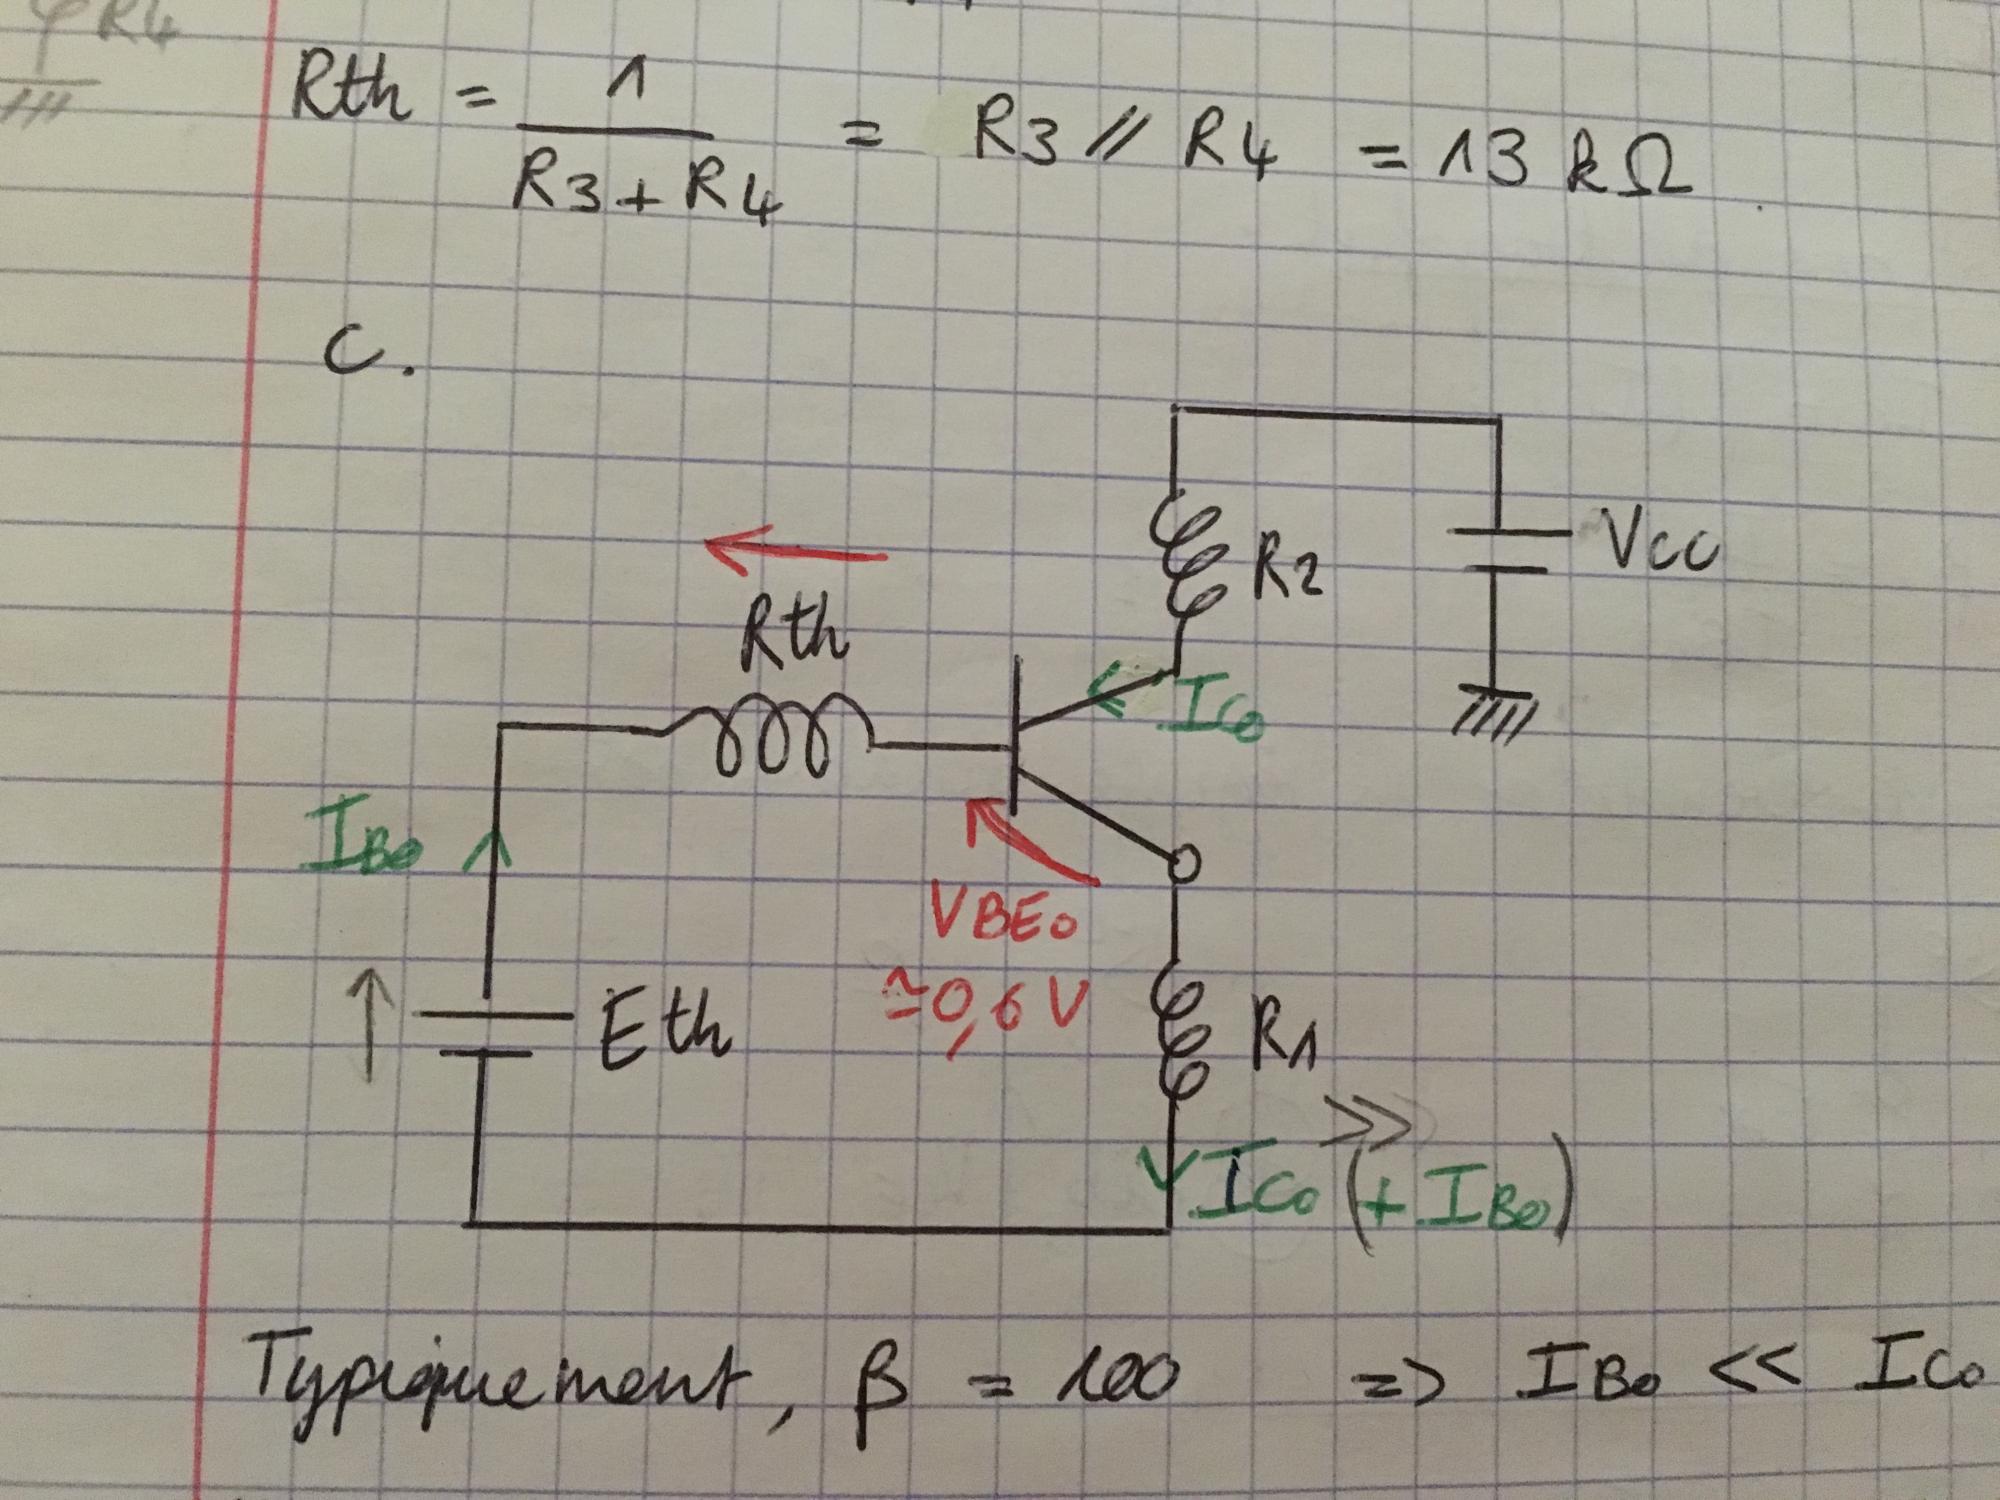 R4
Rth = 1 / (R3 + R4) = R3 // R4 = 13 kΩ
C.
Vcc
R2
Rth
Ic0
IB0
VBE0
≃0,6 V
Eth
R1
>>
Ic0 (+ IB0)
Typiquement, β = 100 => IB0 << Ic0